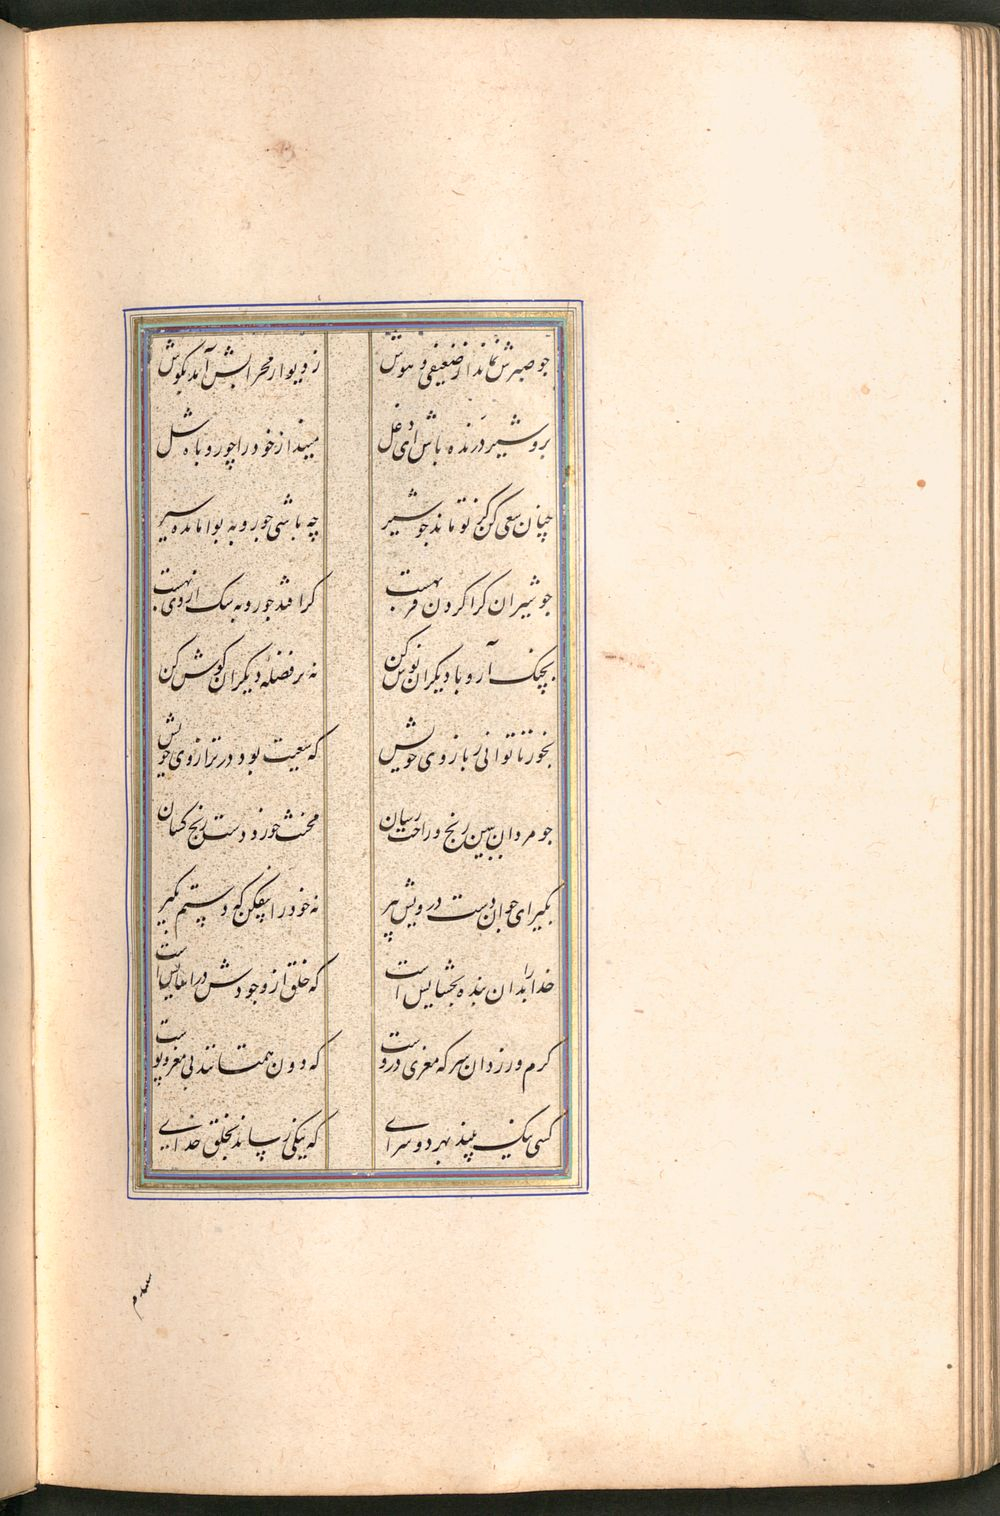 جو صبرش نماند از ضعیفی و هوش ز دیوار محرابش آمد بکوش
برو شیر درنده باش ای دغل مینداز خود را چو روباه شل
چنان سعی کن کز تو ماند جو شیر چه باشی جو روبه بوامانده سیر
جو شیران کرا کردن فربهست کر افتد جو روبه سک از وی بهست
بچنک آر و با دیکران نوش کن نه بر فضلهٔ دیکران کوش کن
بخور تا توانی ز بازوی خویش که سعیت بود در ترازوی خویش
جو مردان ببین رنج و راحت رسان مخنث خورد دست رنج کسان
بکیر ای جوان دست درویش پیر نه خود را بیفکن که دستم بکیر
خدا را بدان بنده بخشایش است که خلق از وجودش در آسایش است
کرم ورزد آن سر که مغزی دروست که دون همتانند بی مغز و پوست
کسی نیک بیند بهر دو سرای که نیکی رساند بخلق خدای